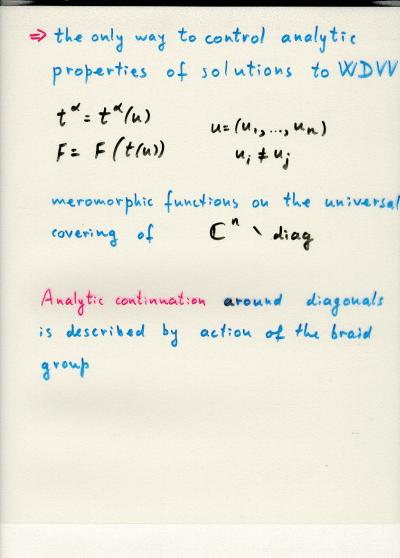 ⇒ the only way to control analytic
properties of solutions to WDVV
t^α = t^α(u)
u = (u_1, ..., u_n)
F = F(t(u))
u_i ≠ u_j
meromorphic functions on the universal
covering of ℂ^n \ diag
Analytic continuation around diagonals
is described by action of the braid
group